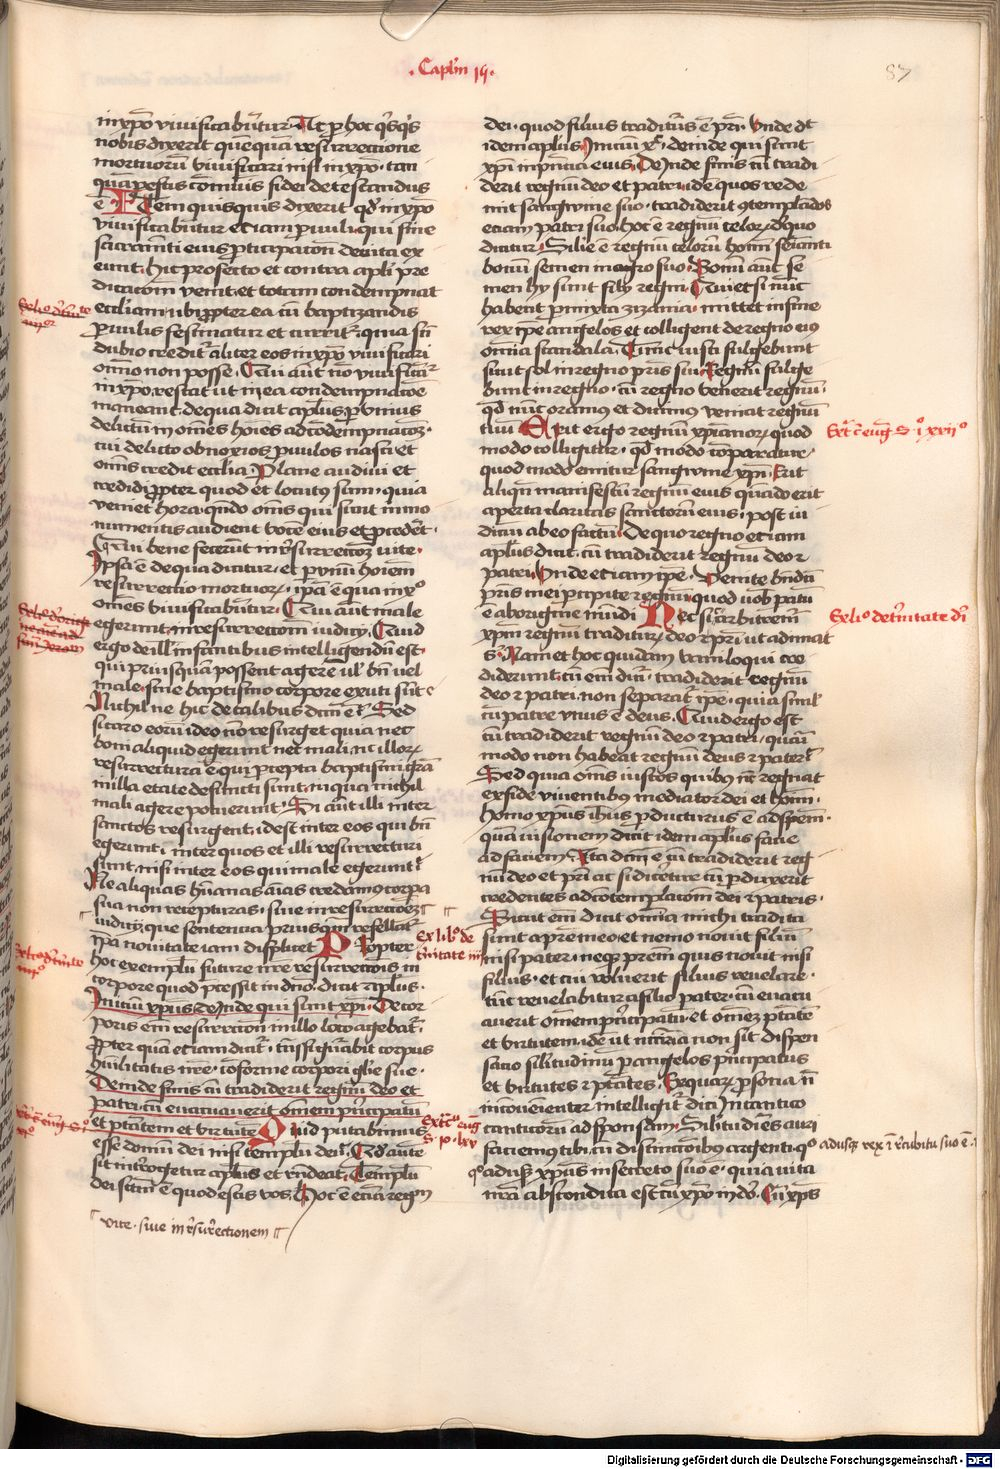 Caplm 14
87
in xpo vivificabuntur Ac per hoc qsqs
nobis dixerit quemquam resurrectione
mortuorum vivificari nisi in xpo tan
quam pestis communis fidei detestandus
e Item quisquis dixerit qd in xpo
vivificabuntur etiam parvuli qui sine
sacramenti eius participatione de vita ex
eunt hic profecto et contra apli pre
dicacionem venit et totam condempnat
eccliam ubi propter ea cum baptizandis
parvulis festinatur et curritur quia sin
dubio creditur aliter eos in xpo vivificari
omnino non posse Qui aut no vivificatur
in xpo restat ut in ea condempnacione
maneant de qua dicit aplus per unius
delictum in omnes hoies ad condempnacoem
cui delicto obnoxios parvulos nasci et
omnis credit ecclia Plane audivi et
credidi propter quod et locutus sum quia
veniet hora quando omes qui sunt in mo
numentis audient voce eius et procedent
Qui bene fecerunt in resurrectoem vite
Ipsa e de qua dicitur et per unum hominem
resurrectio mortuorum ipsa e qua in xo
omes vivificabuntur Qui aut male
egerunt in resurrectionem iudicii Quid
ergo de illis infantibus intelligendum est
qui priusquam possent agere vel bn vel
male sine baptismo corpore exuti sunt
Nichil ne hic de talibus dictum e Sed
si caro eorum ideo no resurget quia nec
boni aliquid egerunt nec mali nec illorum
resurrectura e qui percepta baptismi gra
in illa etate defuncti sunt in qua nichil
mali agere potuerunt Si aut illi inter
sanctos resurgent idest inter eos qui bn
egerunt inter quos et illi resurrecturi
sunt nisi inter eos qui male egerunt
Ne aliquas humanas aias credamus corpora
sua non recepturas sive in resurrectoem
iudicii que sententia priusquam refellatur
ipa novitate iam displicet Propter
hoc exemplum future nre resurrectois in
corpore quod precessit in dno dicit aplus
Inicium xpus deinde qui sunt xpi De cor
poris em resurrectione in illo loco agebatur
propter quam etiam dicit transfigurabit corpus
humilitatis nre conforme corpori glie sue
Deinde finis cum tradiderit regnum deo et
patri cum evacuaverit omem principatum
et potestatem et virtutem Quid putabimus
esse domum dei nisi templum dei Qd autem
sit interrogetur aplus et rndeat Templum
dei sctum e quod estis vos Hoc e etiam regnum
vite sive in resurrectionem
dei quod filius traditurus e pri Unde dt
idem aplus Inicium xr deinde qui sunt
xpi in presentia eius Deinde finis cum tradi
derit regnum deo et patri idest quos rede
mit sanguine suo tradiderit contemplandos
etiam patri suo hoc e regnum celorum de quo
dicitur Simile e regnum celorum homini seminanti
bonum semen in agro suo Bonum aut se
men hy sunt filii regni Qui etsi nunc
habent permixta zizania mittet in fine
rex ipe angelos et colligent de regno eius
omnia scandala Tunc iusti fulgebunt
sicut sol in regno pris sui Regnum fulge
bunt in regno cum regno venerit regnum
qd nunc oramus et dicimus veniat regnum
tuum Erit ergo regnum xpianorum quod
modo colligitur qd modo comparatur
quod modo emitur sanguine xpi Erit
aliqn manifestum regnum eius quando erit
aperta claritas sanctorum eius post iu
dicium ab eo factum De quo regno etiam
aplus dicit cum tradiderit regnum deo et
patri Unde etiam ipe Venite bndicti
pris mei percipite regnum quod vobis paratum
e ab origine mundi Nec sic arbitremur
xpm regnum traditurum deo et pri ut adimat
s Nam et hoc quidam vaniloqui cre
diderunt cum em dicitur tradiderit regnum
deo et patri non separatur ipe quia simul
cum patre unus e deus Quid ergo est
cum tradiderit regnum deo et patri quasi
modo non habeat regnum deus et pater
Sed quia omes iustos quibus nc regnat
ex fide viventibus mediator dei et hominum
homo xpus ihus perducturus e ad speciem
quam visionem dicit idem aplus facie
ad faciem Ita dictum e cum tradiderit reg
num deo et pri ac si diceretur cum perduxerit
credentes ad contemplacionem dei et patris
Sicut em dicit omnia michi tradita
sunt a patre meo et nemo novit filium
nisi pater neque patrem quis novit nisi
filius et cui voluerit filius revelare
tunc revelabitur a filio pater cum evacu
averit omnem principatum et omem potestatem
et virtutem idest ut necessaria non sit dispen
sacio similitudinum per angelos principatus
et virtutes et potestates Ex quarum persona non
inconvenienter intelligitur dici in cantico
canticorum ad sponsam Similitudines auri
faciemus tibi cum distinctionibus argenti quo
adusque xpus in secreto suo e quia vita
nra abscondita est cum xpo in deo Cum xpus
Ex libo de
trinitate iii
Ex trc eug
Ex tr c eug S i xvii
Ex lio de trinitate di
adusque rex in recubitu suo e